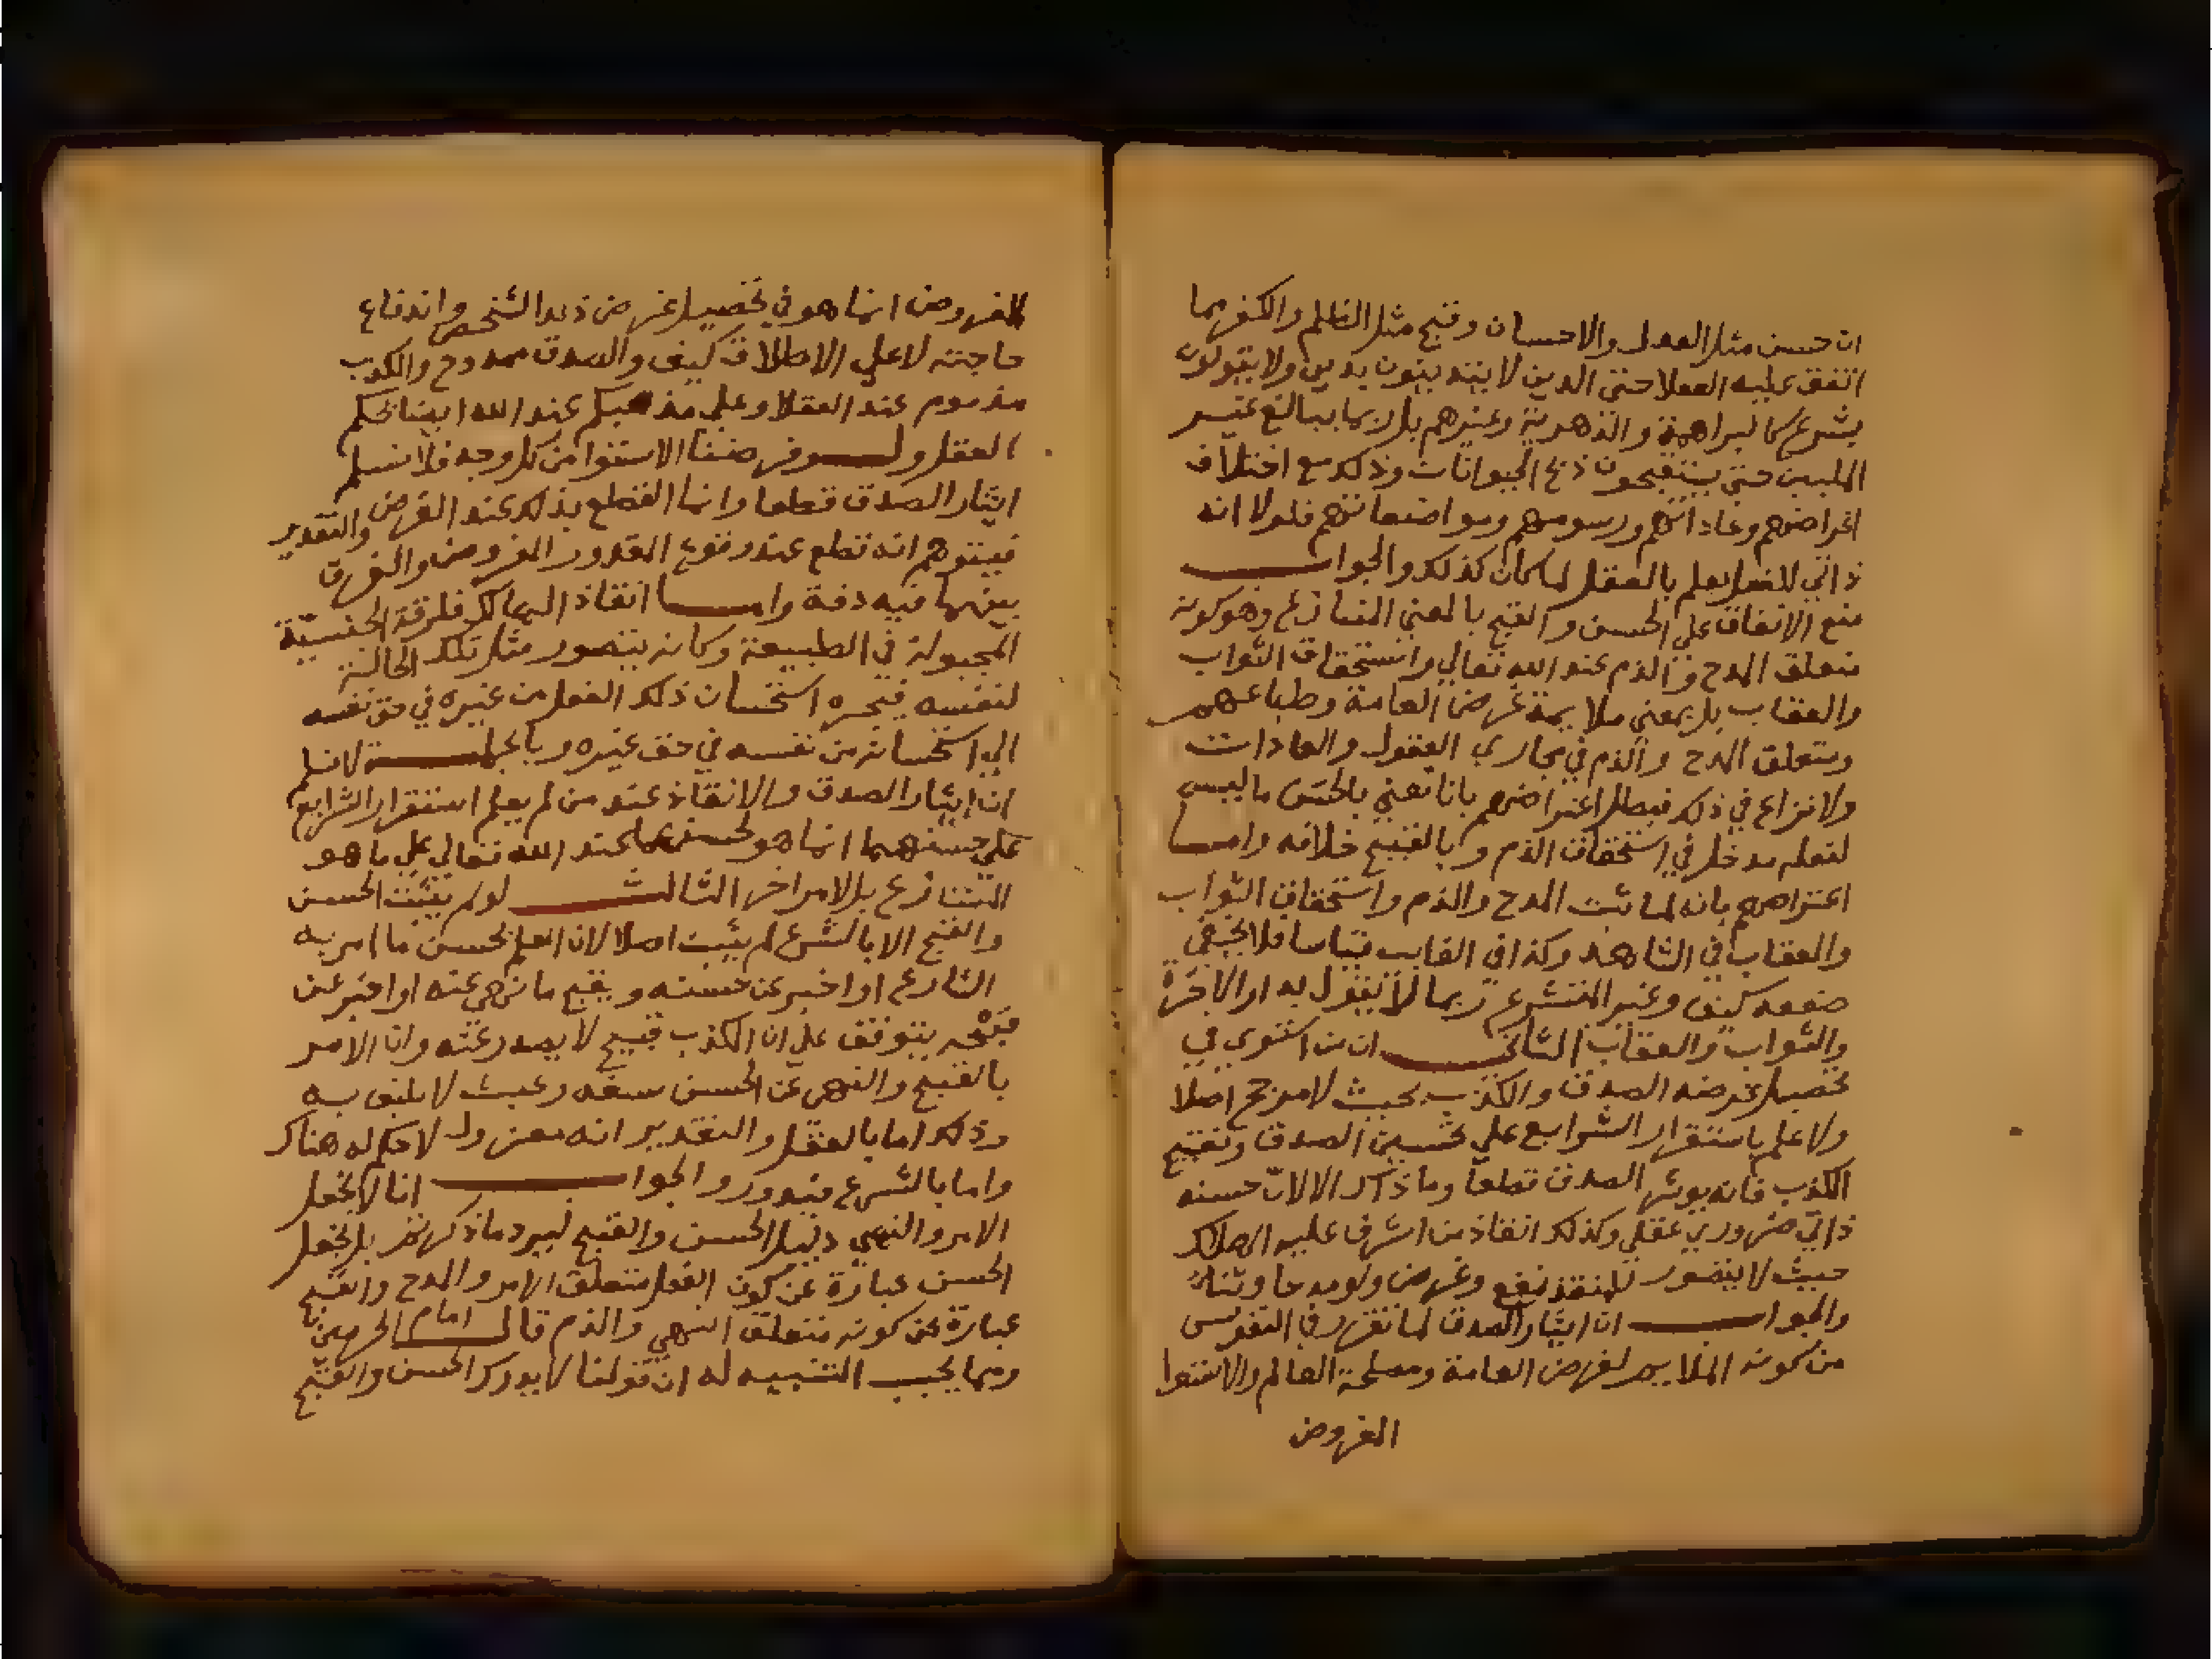 ان حسن مثل العدل والاحسان وقبح مثل الظلم والكفر مما
اتفق عليه العقلا حتى الذين لا يتدينون بدين ولا يقولون
بشرع كالبراهمة والدهرية وغيرهم بل ربما يبالغ غير
المليين حتى يستقبحون ذبح الحيوانات وذلك مع اختلاف
اغراضهم وعاداتهم ورسومهم ومواضعاتهم فلولا انه
ذاتي للفعل يعلم بالعقل لما كان كذلك والجواب
منع الاتفاق على الحسن والقبح بالمعنى المتنازع وهو كونه
متعلق المدح والذم عند الله تعالى واستحقاق الثواب
والعقاب بل بمعنى ملايمة غرض العامة وطباعهم
ومتعلق المدح والذم في مجاري العقول والعادات
ولا نزاع في ذلك فبطل اعتراضهم بانا نعني بالحسن ما ليس
لفعله مدخل في استحقاق الذم وبالقبيح خلافه واما
اعتراضهم بانه لما ثبت المدح والذم واستحقاق الثواب
والعقاب في الشاهد وكذا في الغايب قياسا فلا يخفى
ضعفه كيف وغير المتشرع ربما لا يقول بدار الاخرة
والثواب والعقاب الثاني ان من استوى في
تحصيل غرضه الصدق والكذب بحيث لا مرجح اصلا
ولا علم باستقرار الشرايع على تحسين الصدق وتقبيح
الكذب فانه يوثر الصدق قطعا وما ذاك الا لان حسنه
ذاتي ضروري عقلي وكذلك انقاذ من اشرف على الهلاك
حيث لا يتصور للمنقذ نفع وغرض ولو مدحا وثناء
والجواب ان ايثار الصدق لما تقرر في النفوس
من كونه الملايم لغرض العامة ومصلحة العالم والاستوا
المفروض
المفروض انما هو في تحصيل غرض ذلك الشخص واندفاع
حاجته لا على الاطلاق كيف والصدق ممدوح والكذب
مذموم عند العقلا وعلى مذهبكم عند الله ايضا بحكم
العقل ولو فرضنا الاستوا من كل وجه فلا نسلم
ايثار الصدق قطعا وانما القطع بذلك عند الفرض والتقدير
فيتوهم انه قطع عند وقوع المقدور المفروض والفرق
بينهما فيه دقة واما انقاذ الهالك فلرقة الجنسية
المجبولة في الطبيعة وكانه يتصور مثل تلك الحالة
لنفسه فيجره استحسان ذلك الفعل من غيره في حق نفسه
الى استحسانه من نفسه في حق غيره وبالجملة لا نسلم
ان ايثار الصدق والانقاذ عند من لم يعلم استقرار الشرايع
على حسنهما انما هو لحسنهما عند الله تعالى على ما هو
المتنازع بل لامر اخر الثالث لو لم يثبت الحسن
والقبح الا بالشرع لم يثبت اصلا لان العلم بحسن ما امر به
الشارع او اخبر عن حسنه وبقبح ما نهى عنه او اخبر عن
قبحه يتوقف على ان الكذب قبيح لا يصدر عنه وان الامر
بالقبيح والنهي عن الحسن سفه وعبث لا يليق به
وذلك اما بالعقل والتقدير انه معزول لا حكم له هناك
واما بالشرع فيدور والجواب انا لا نجعل
الامر والنهي دليل الحسن والقبح ليرد ما ذكرتم بل نجعل
الحسن عبارة عن كون الفعل متعلق الامر والمدح والقبح
عبارة عن كونه متعلق النهي والذم قال امام الحرمين
ومما يجب التنبيه له ان قولنا لا يدرك الحسن والقبح